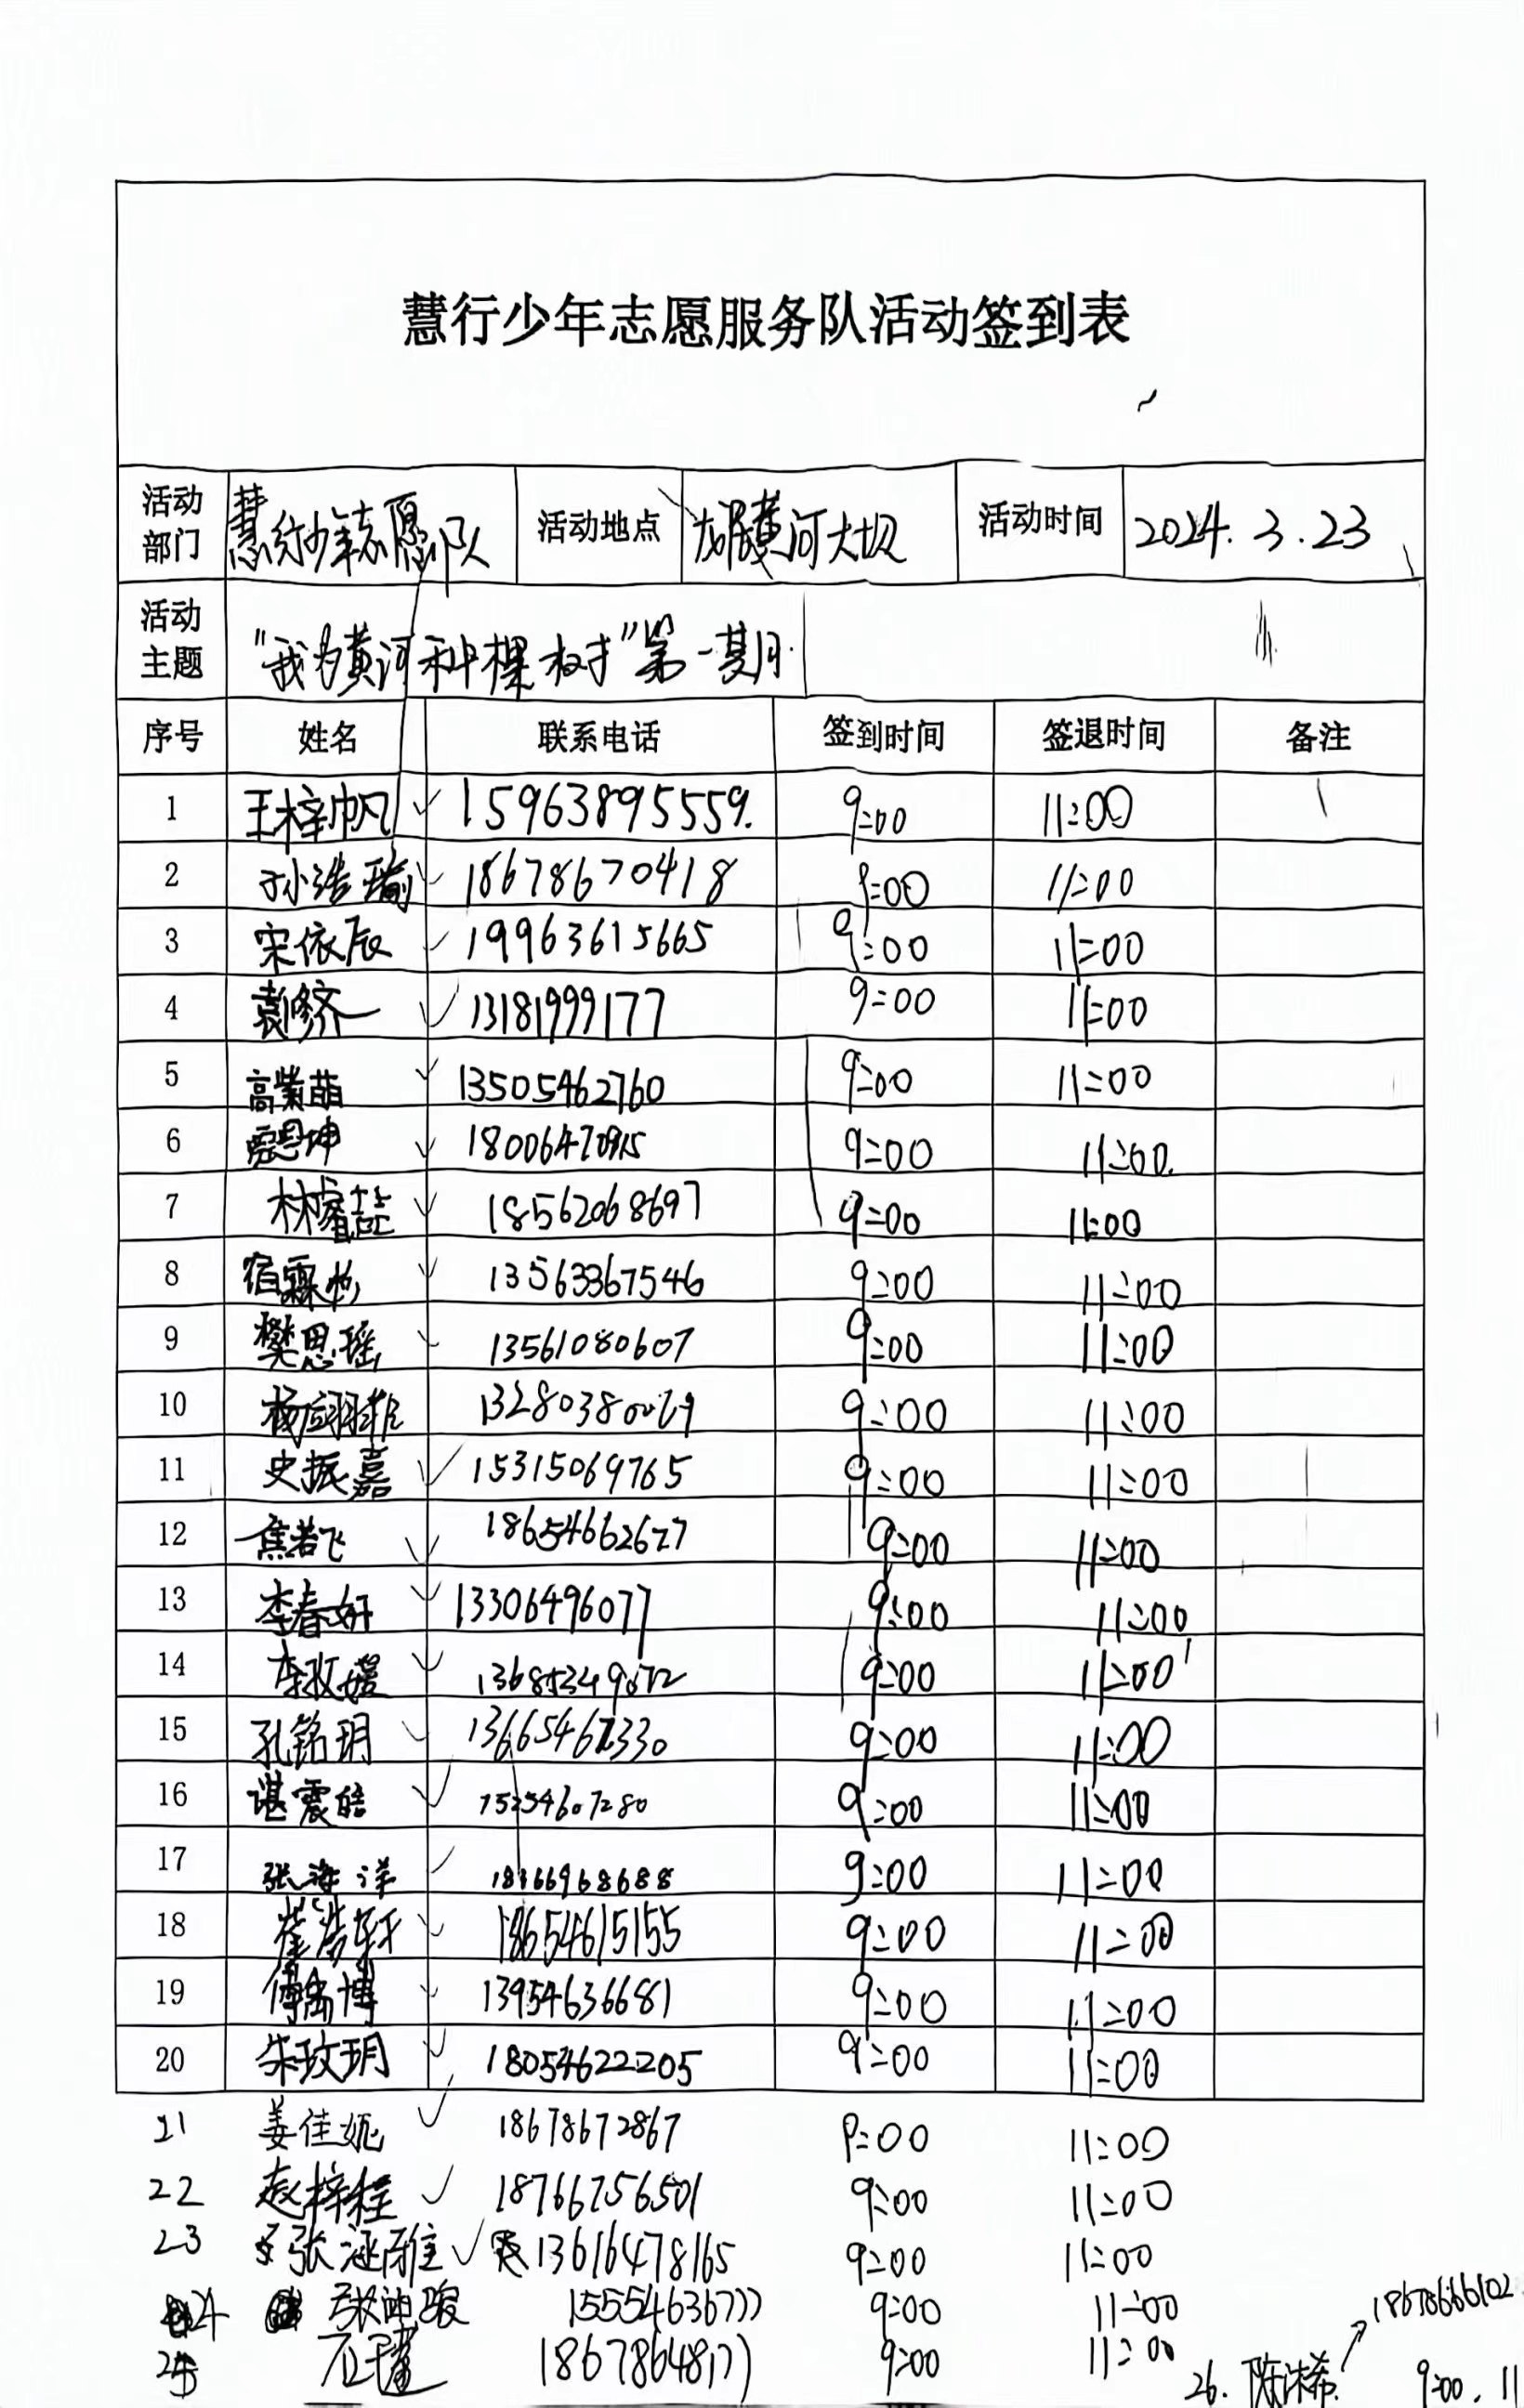 慧行少年志愿服务队活动签到表
活动部门 慧行少年志愿队 活动地点 龙居黄河大坝 活动时间 2024.3.23
活动主题 "我为黄河种棵树"第一期
序号 姓名 联系电话 签到时间 签退时间 备注
1 王梓帆 15963895559. 9:00 11:00
2 孙浩瑜 18678670418 9:00 11:00
3 宋依辰 19963615665 9:00 11:00
4 袁修齐 13181999177 9:00 11:00
5 高紫萌 13505462760 9:00 11:00
6 9:00 11:00
7 林睿喆 18562068697 9:00 11:00
8 宿霖 13563367546 9:00 11:00
9 樊思瑶 13561080607 9:00 11:00
10 9:00 11:00
11 史振嘉 15315069765 9:00 11:00
12 焦若飞 9:00 11:00
13 李春妍 13306496077 9:00 11:00
14 李玫媛 9:00 11:00
15 孔铭玥 9:00 11:00
16 谌震皓 9:00 11:00
17 张海洋 9:00 11:00
18 崔浩轩 18654615155 9:00 11:00
19 傅禹博 13954636681 9:00 11:00
20 朱玟玥 18054622205 9:00 11:00
21 姜佳妮 18678672867 9:00 11:00
22 赵梓程 18766756501 9:00 11:00
23 张涵雅 13616478165 9:00 11:00
24 张 骏 15554636777 9:00 11:00
25 18678648177 9:00 11:00
18678666102
26. 陈沐希 9:00, 11